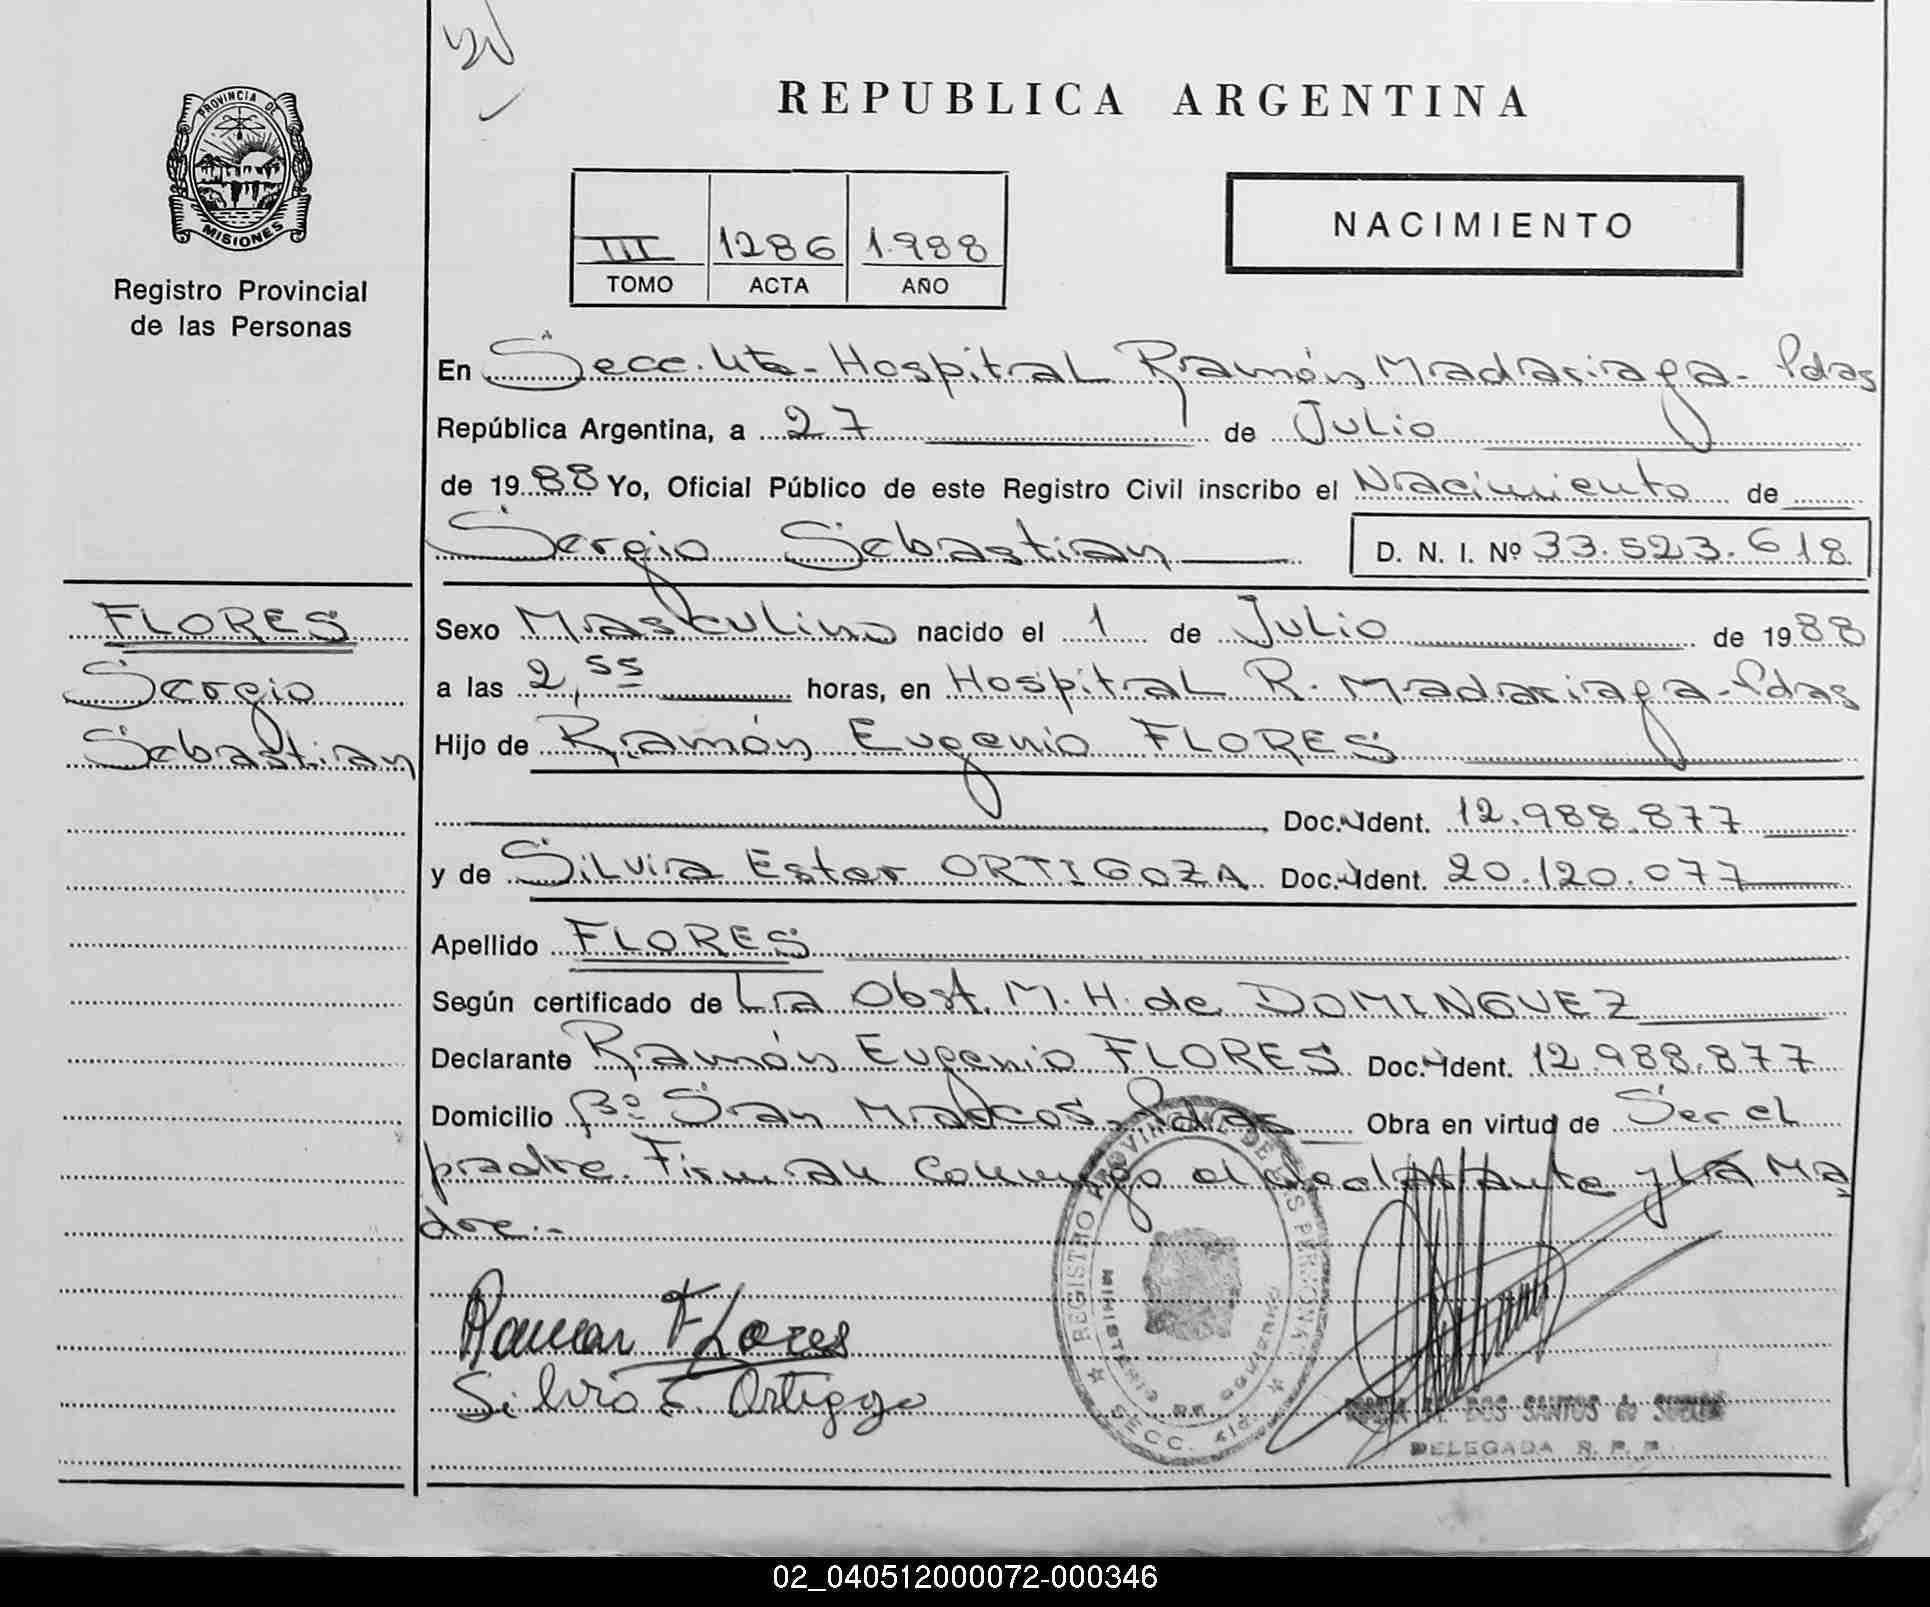 PROVINCIA DE
MISIONES
Registro Provincial
de las Personas
REPUBLICA ARGENTINA
NACIMIENTO
III 1286 1.988
TOMO ACTA AÑO
En Secc. 4ta - Hospital Ramón Madariaga - Pdas
República Argentina, a 27 de Julio
de 1988 Yo, Oficial Público de este Registro Civil inscribo el Nacimiento de
Sergio Sebastian D. N. I. Nº 33.523.618
FLORES
Sergio
Sebastian
Sexo Masculino nacido el 1 de Julio de 1988
a las 2,55 horas, en Hospital R. Madariaga - Pdas
Hijo de Ramón Eugenio FLORES
Doc. Ident. 12.988.877
y de Silvia Ester ORTIGOZA Doc. Ident. 20.120.077
Apellido FLORES
Según certificado de La Obst. M. H. de DOMINGUEZ
Declarante Ramón Eugenio FLORES Doc. Ident. 12.988.877
Domicilio Bº San Marcos - Pdas Obra en virtud de Ser el
padre. Firman conmigo el declarante y La Ma
dre.-
Ramon Flores
Silvia E. Ortigoza
REGISTRO PROVINCIAL DE LAS PERSONAS
MINISTERIO DE GOBIERNO
SECC. 4ta
DOS SANTOS de
DELEGADA R. P. P.
02_040512000072-000346